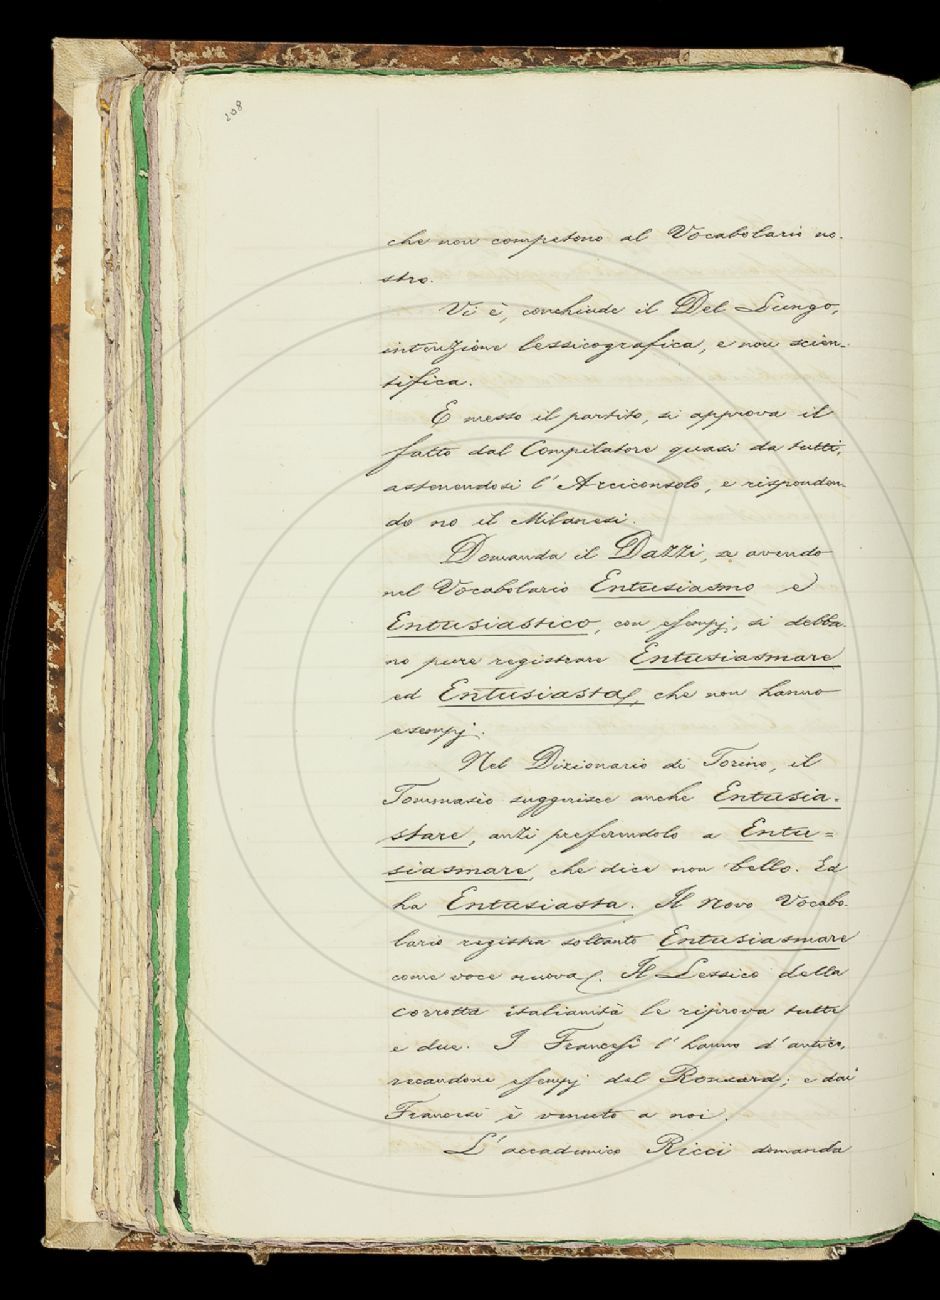 208
che non competono al Vocabolario no-
stro.
Vi è, conchiude il Del Lungo,
intenzione lessicografica, e non scien-
tifica.
E messo il partito, si approva il
fatto dal Compilatore quasi da tutti,
astenendosi l'Arciconsolo, e risponden-
do no il Milanesi.
Domanda il Dazzi, se avendo
nel Vocabolario Entusiasmo e
Entusiastico, con esempj, si debba-
no pure registrare Entusiasmare
ed Entusiasta, che non hanno
esempj.
Nel Dizionario di Torino, il
Tommaseo suggerisce anche Entusia-
stare, anzi preferendolo a Entu=
siasmare, che dice non bello. Ed
ha Entusiasta. Il Novo Vocabo-
lario registra soltanto Entusiasmare
come voce nuova. Il Lessico della
corrotta italianità le riprova tutte
e due. I Francesi l'hanno d'antico,
recandone esempj del Ronsard; e dai
Francesi è venuto a noi.
L'accademico Ricci domanda